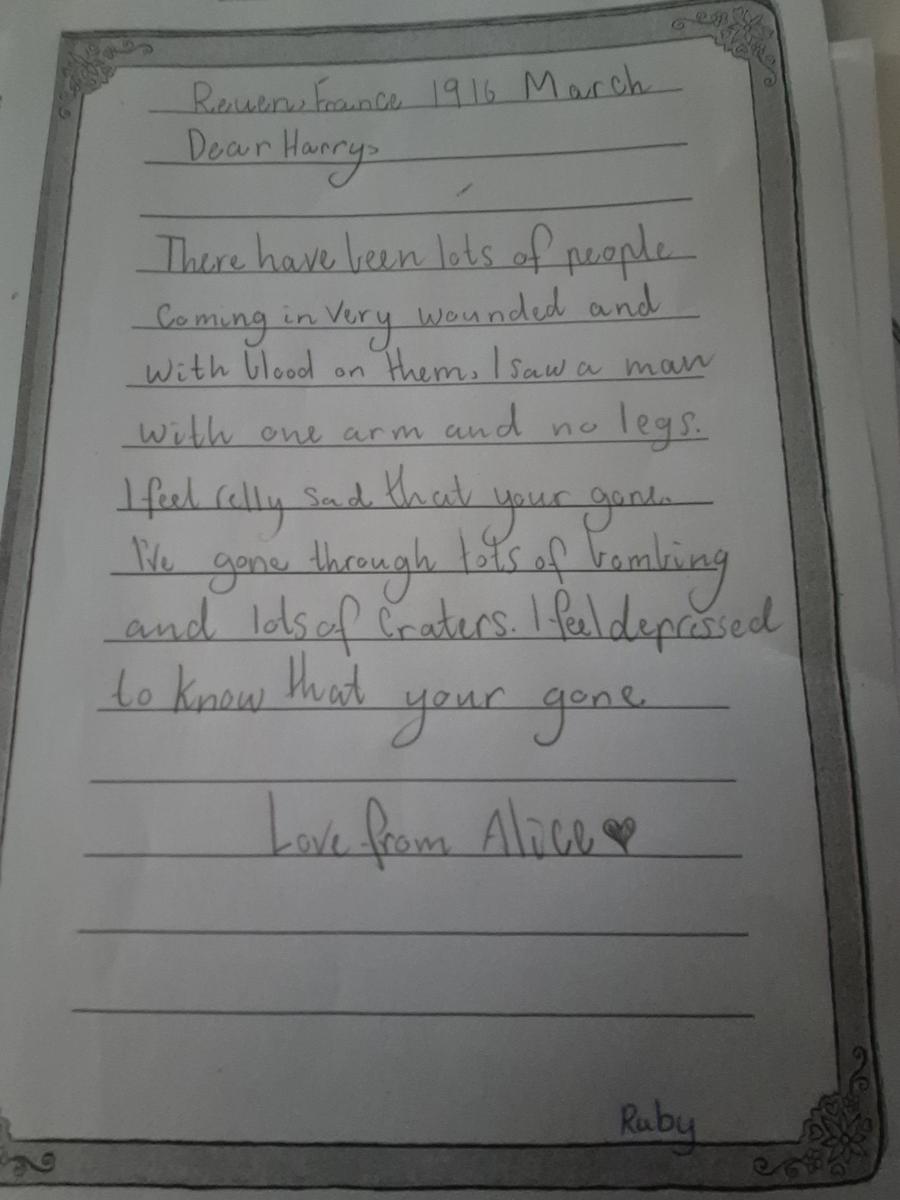 Reuen, France 1916 March
Dear Harry,
There have been lots of people
coming in very wounded and
with blood on them. I saw a man
with one arm and no legs.
I feel relly sad that your gone.
I've gone through lots of bombing
and lots of craters. I feel depressed
to know that your gone.
Love from Alice ♥
Ruby